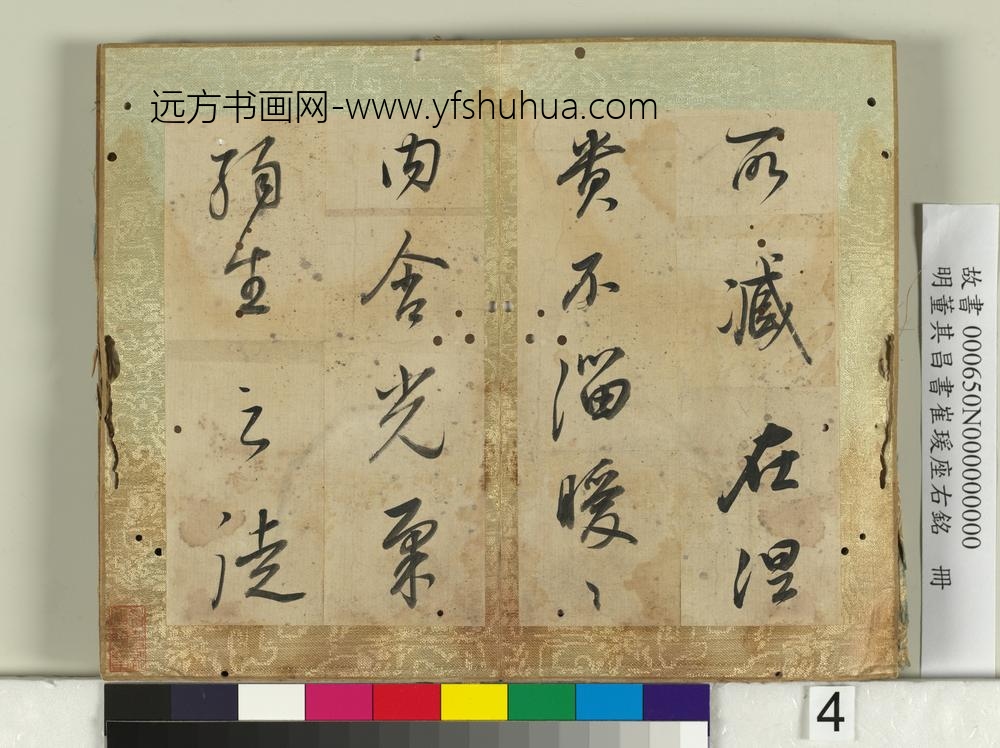 远方书画网-www.yfshuhua.com
所臧在涅
貴不淄曖〻
内含光柔
弱生之徒
故書 000650N000000000
明董其昌書崔瑗座右銘 冊
4